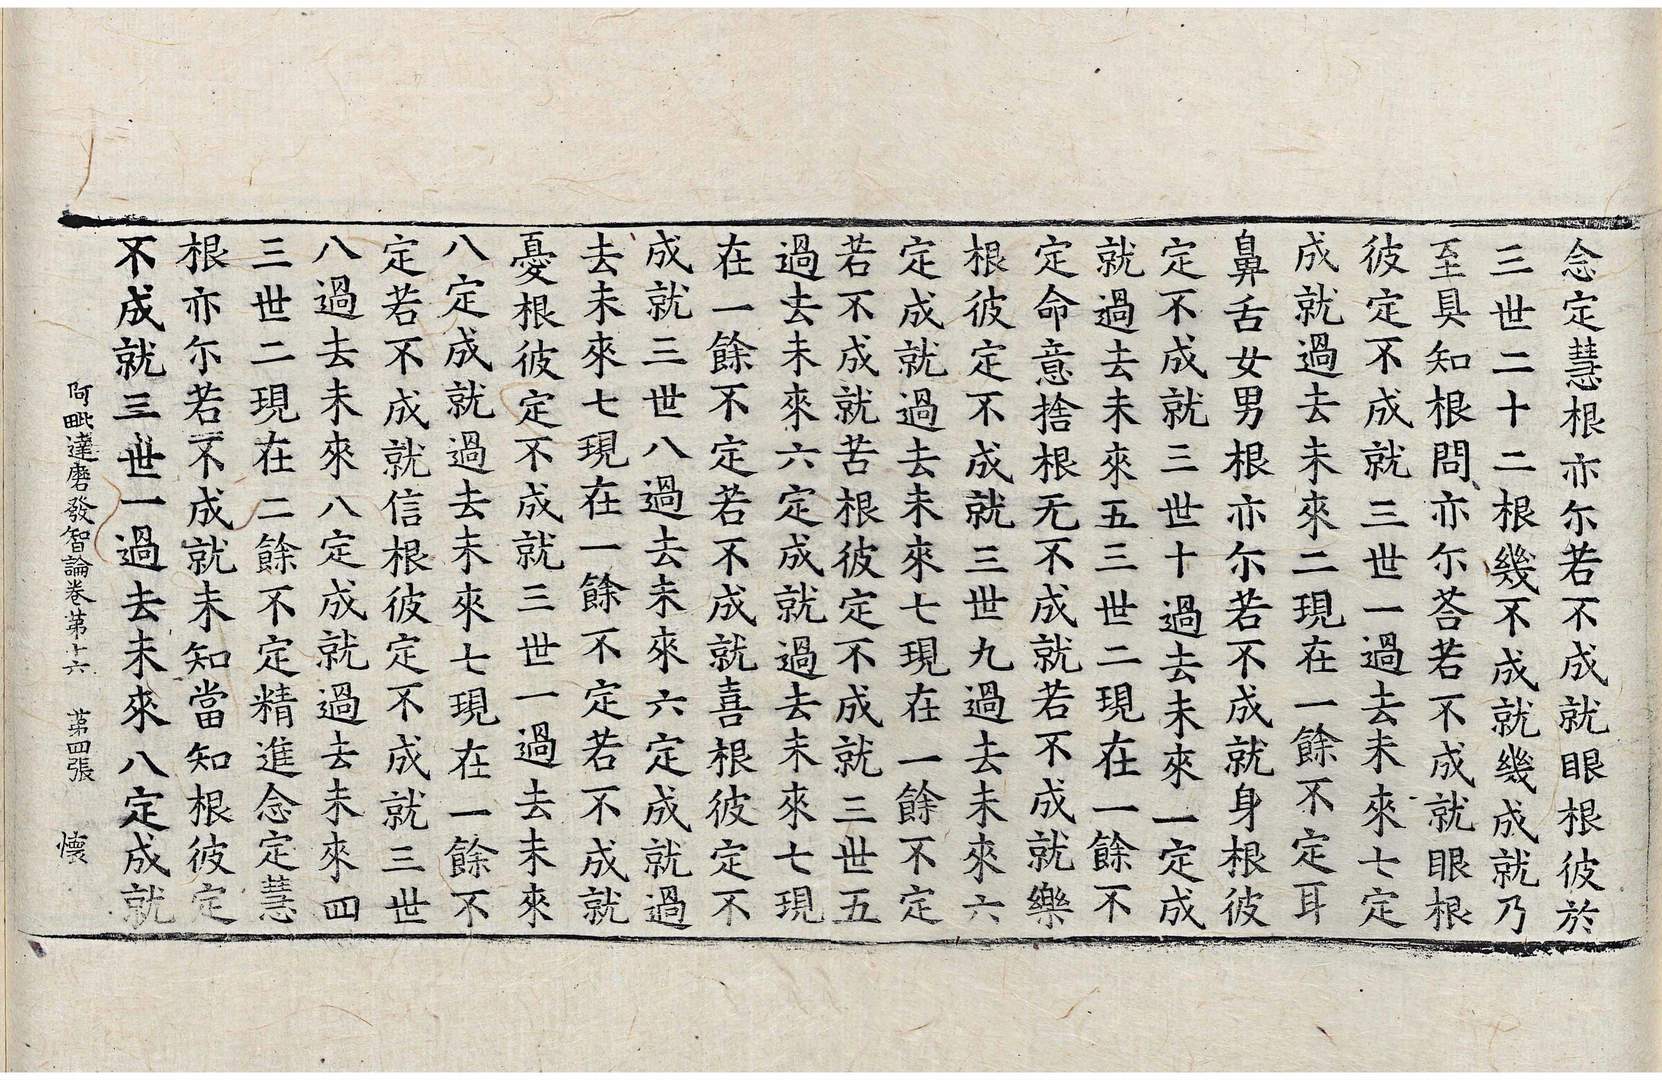 念定慧根亦尒若不成就眼根彼於
三世二十二根幾不成就幾成就乃
至具知根問亦尒荅若不成就眼根
彼定不成就三世一過去未來七定
成就過去未來二現在一餘不定耳
鼻舌女男根亦尒若不成就身根彼
定不成就三世十過去未來一定成
就過去未來五三世二現在一餘不
定命意捨根无不成就若不成就樂
根彼定不成就三世九過去未來六
定成就過去未來七現在一餘不定
若不成就苦根彼定不成就三世五
過去未來六定成就過去未來七現
在一餘不定若不成就喜根彼定不
成就三世八過去未來六定成就過
去未來七現在一餘不定若不成就
憂根彼定不成就三世一過去未來
八定成就過去未來七現在一餘不
定若不成就信根彼定不成就三世
八過去未來八定成就過去未來四
三世二現在二餘不定精進念定慧
根亦尒若不成就未知當知根彼定
不成就三世一過去未來八定成就
阿毗達磨發智論卷苐十六 苐四張 懷